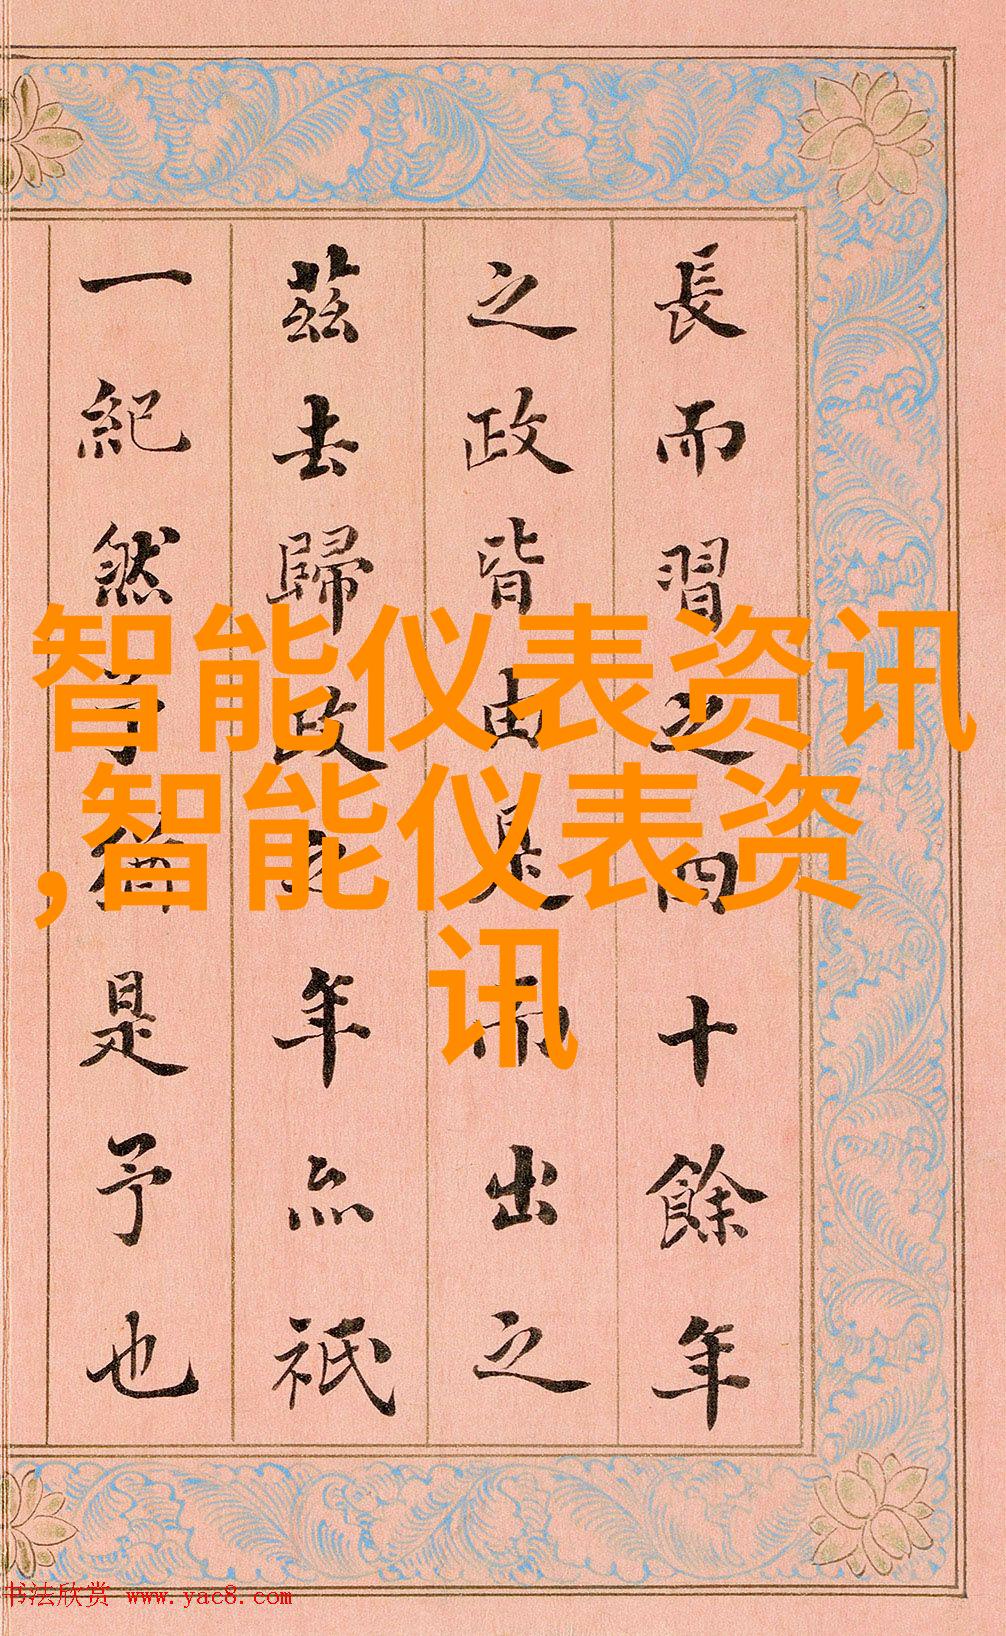 長而習之四十餘年
之政皆由是而出之
茲去歸政之年亦祇
一紀然予猶是予也
智能仪表资讯
,智能仪表资
讯
书法欣赏 www.yac8.com